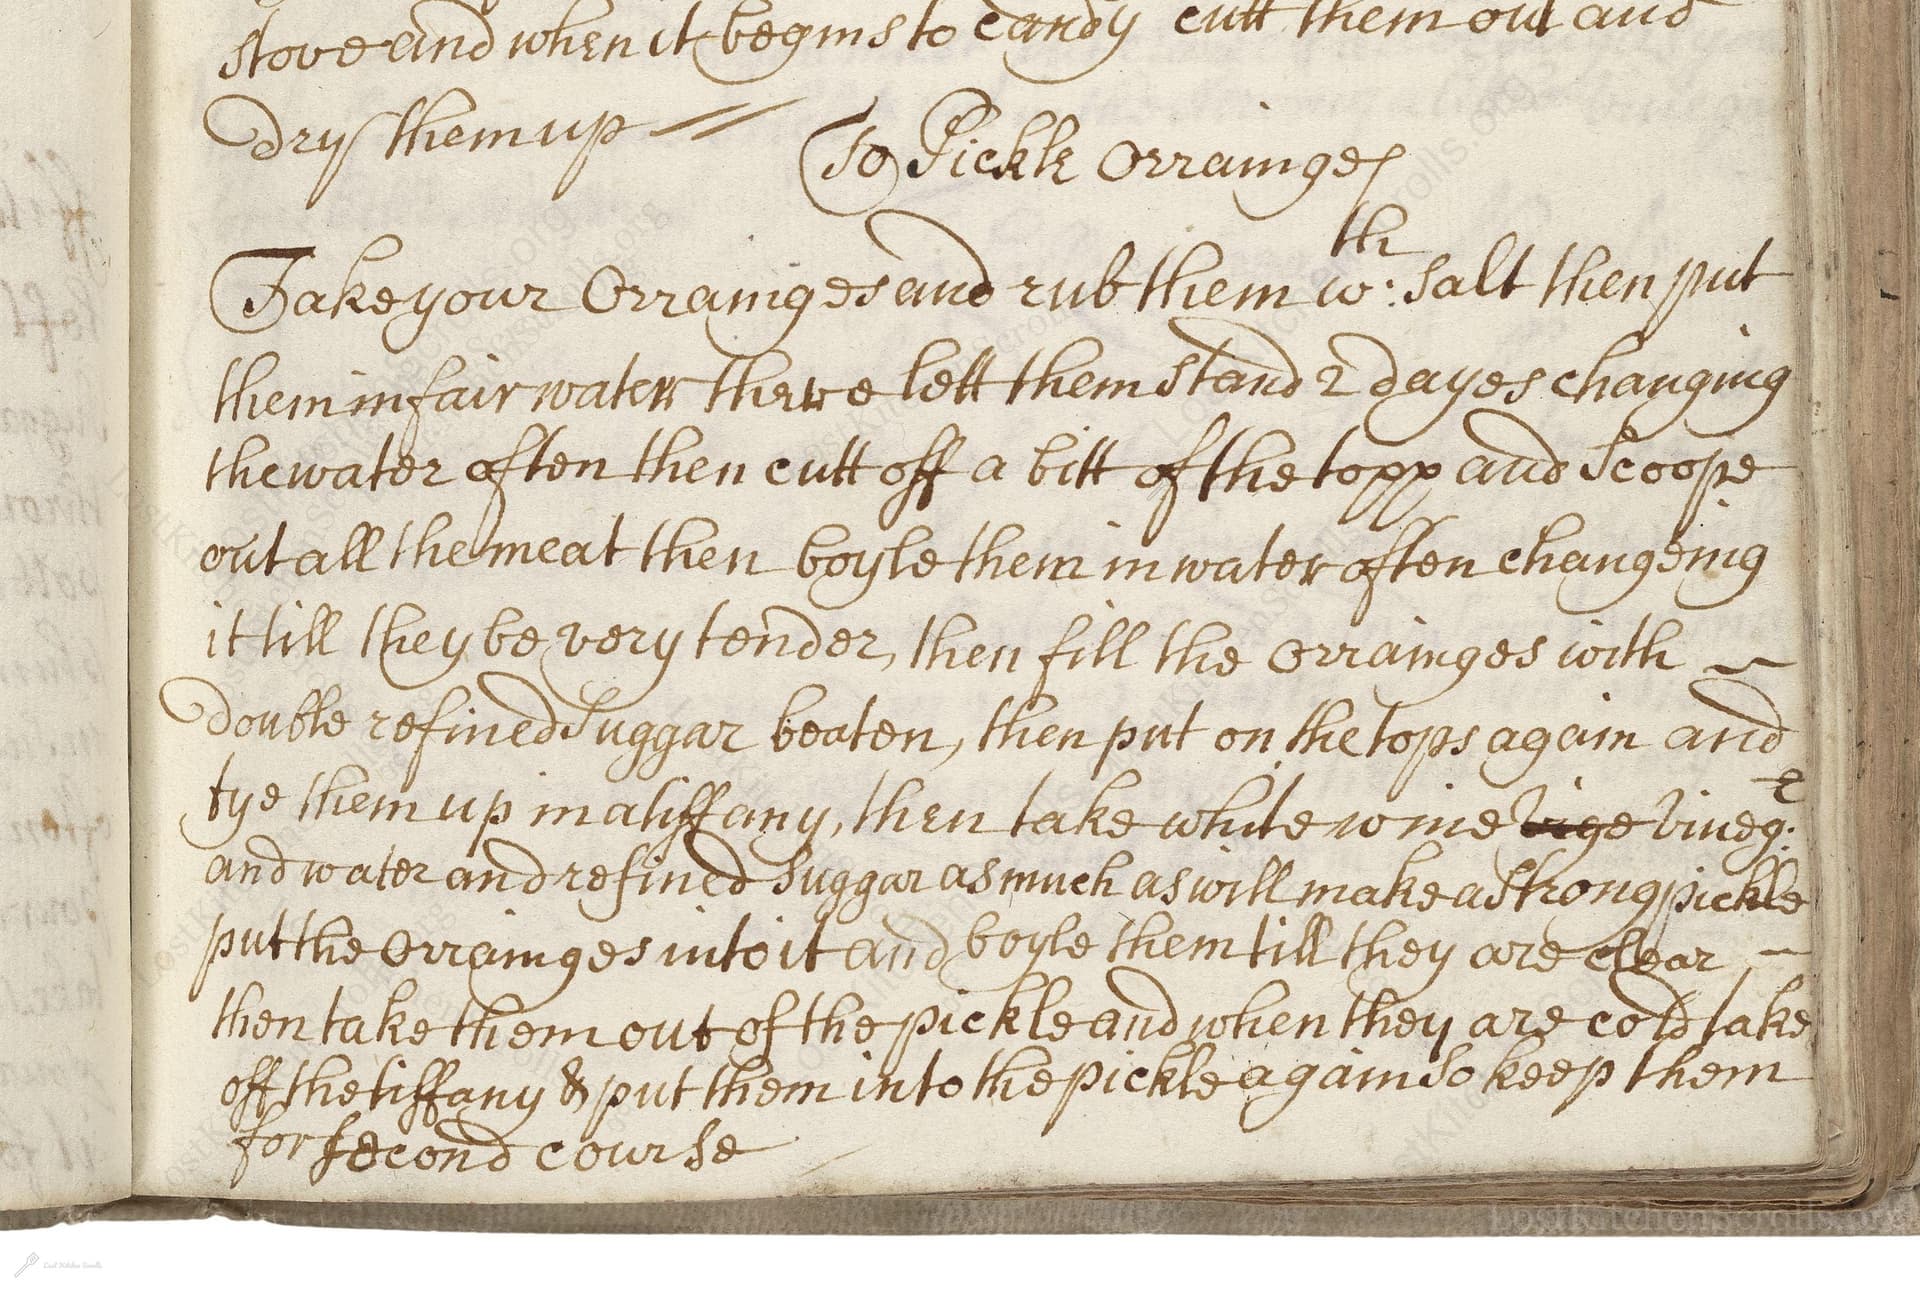 stove and when it begins to Candy cutt them out and
dry them up
To Pickle Orrainges
Take your Orrainges and rub them wth: salt then put
them in fair water there lett them stand 2 dayes changing
the water often then cutt off a bitt of the topp and Scoope
out all the meat then boyle them in water often changeing
it till they be very tender, then fill the Orrainges with
double refined Suggar beaten, then put on the tops again and
tye them up in a tiffany, then take white wine Vinegr:
and water and refined Suggar as much as will make a strong pickle
put the Orrainges into it and boyle them till they are clear
then take them out of the pickle and when they are cold take
off the tiffany & put them into the pickle again so keep them
for second course
LostKitchenScrolls.org
Lost Kitchen Scrolls